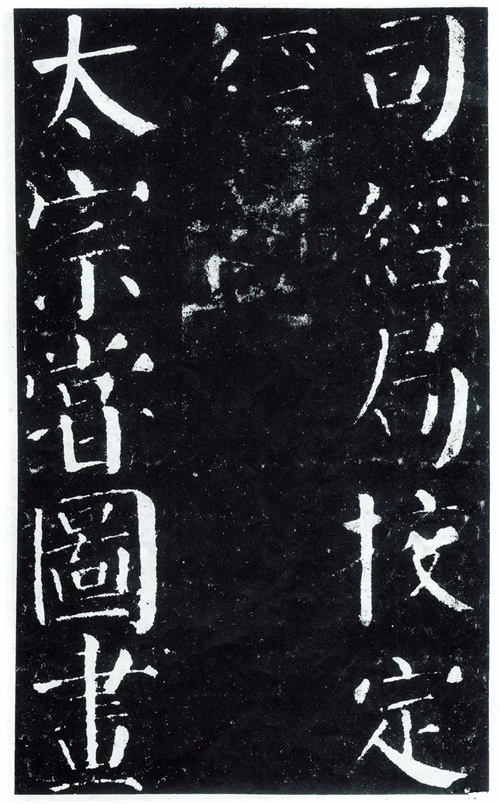 司經局校定
經
太宗嘗圖畫